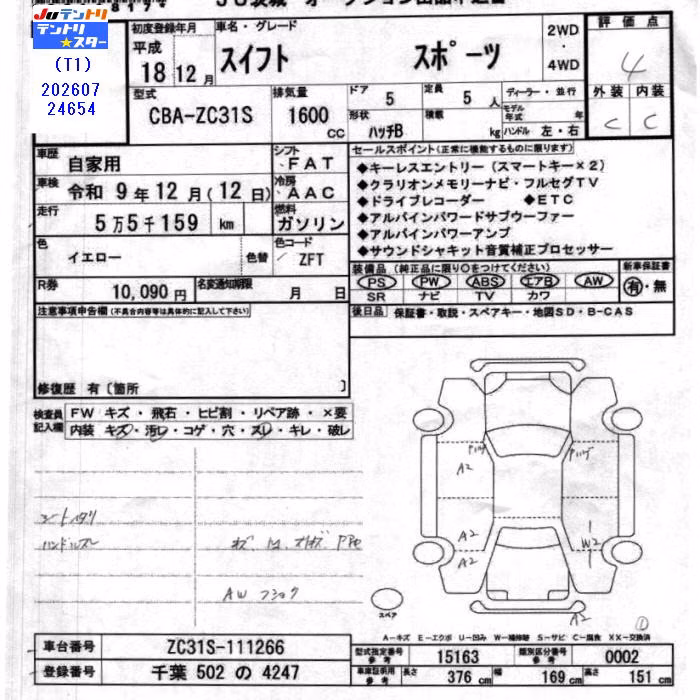 JUテントリ
テントリ
★スター
(T1)
202607
24654
初度登録年月
平成
18年12月
車名・グレード
スイフト スポーツ
2WD
・
4WD
評価点
4
型式
CBA-ZC31S
排気量
1600
CC
ドア
5
定員
5人
形状
ハッチB
積載
kg
ディーラー・並行
モデル年式 年
ハンドル 左・右
外装 内装
C C
車歴
自家用
シフト
FAT
車検
令和 9年12月(12日)
冷房
AAC
走行
5万5千159 km
燃料
ガソリン
色
イエロー
色替
色コード
ZFT
R券
10,090円
名変通知期限
月 日
セールスポイント(正常に機能するものに限ります)
◆キーレスエントリー(スマートキー×2)
◆クラリオンメモリーナビ・フルセグTV
◆ドライブレコーダー ◆ETC
◆アルパインパワードサブウーファー
◆アルパインパワーアンプ
◆サウンドシャキット音質補正プロセッサー
装備品(純正品に限り○をつけてください)
PS PW ABS エアB AW
SR ナビ TV カワ
新車保証書
有・無
後日品 保証書・取説・スペアキー・地図SD・B-CAS
注意事項申告欄(不具合内容等は具体的に記入して下さい)
修復歴 有〔箇所 〕
検査員記入欄
FW キズ・飛石・ヒビ割・リペア跡・×要
内装 キズ・汚レ・コゲ・穴・スレ・キレ・破レ
シートヘタリ
ハンドルスレ
A2
A2
A2
W2
A2
スペア
①
A-キズ E-エクボ U-凹み W-補修跡 S-サビ C-腐食 XX-交換済
車台番号 ZC31S-111266
登録番号 千葉 502 の 4247
型式指定番号 参考 15163
類別区分番号 参考 0002
車庫証明用 参考 長さ 376 cm 幅 169 cm 高さ 151 cm